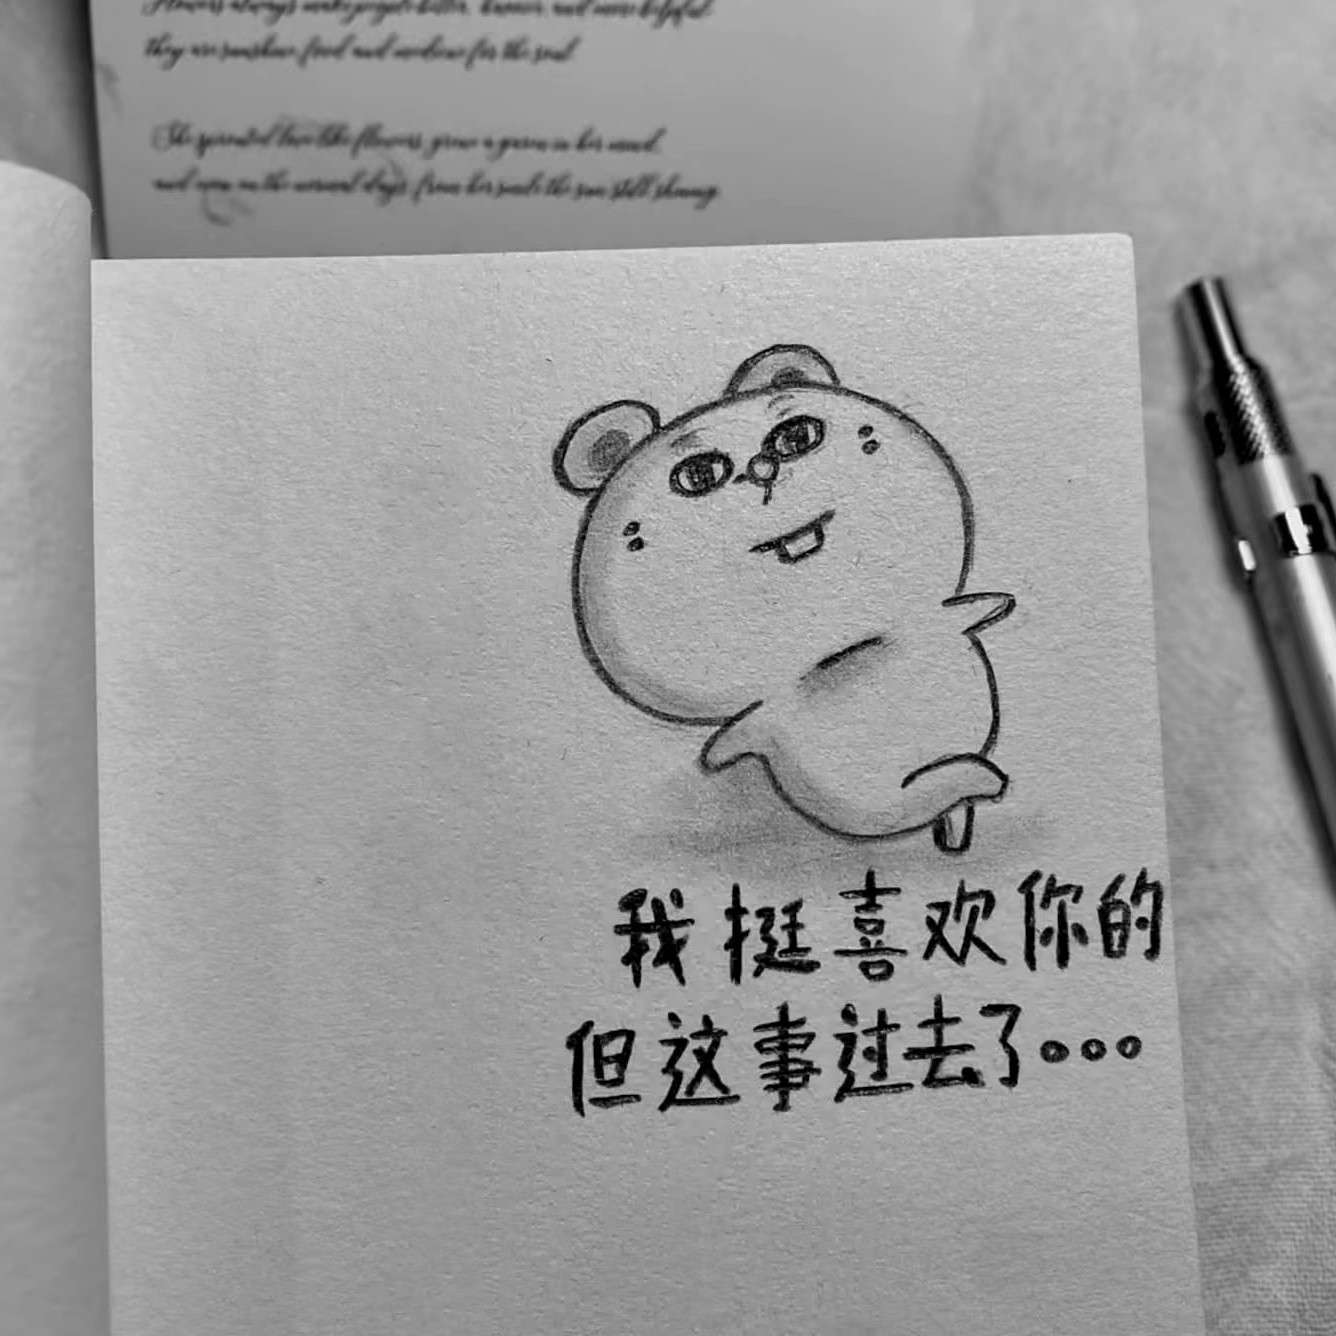 Flowers always make people better, happier, and more helpful
they are sunshine, food and medicine for the soul.
She sprouted love like flowers, grew a garden in her mind,
and even on the normal days, from her smile the sun still shining.
我挺喜欢你的
但这事过去了...